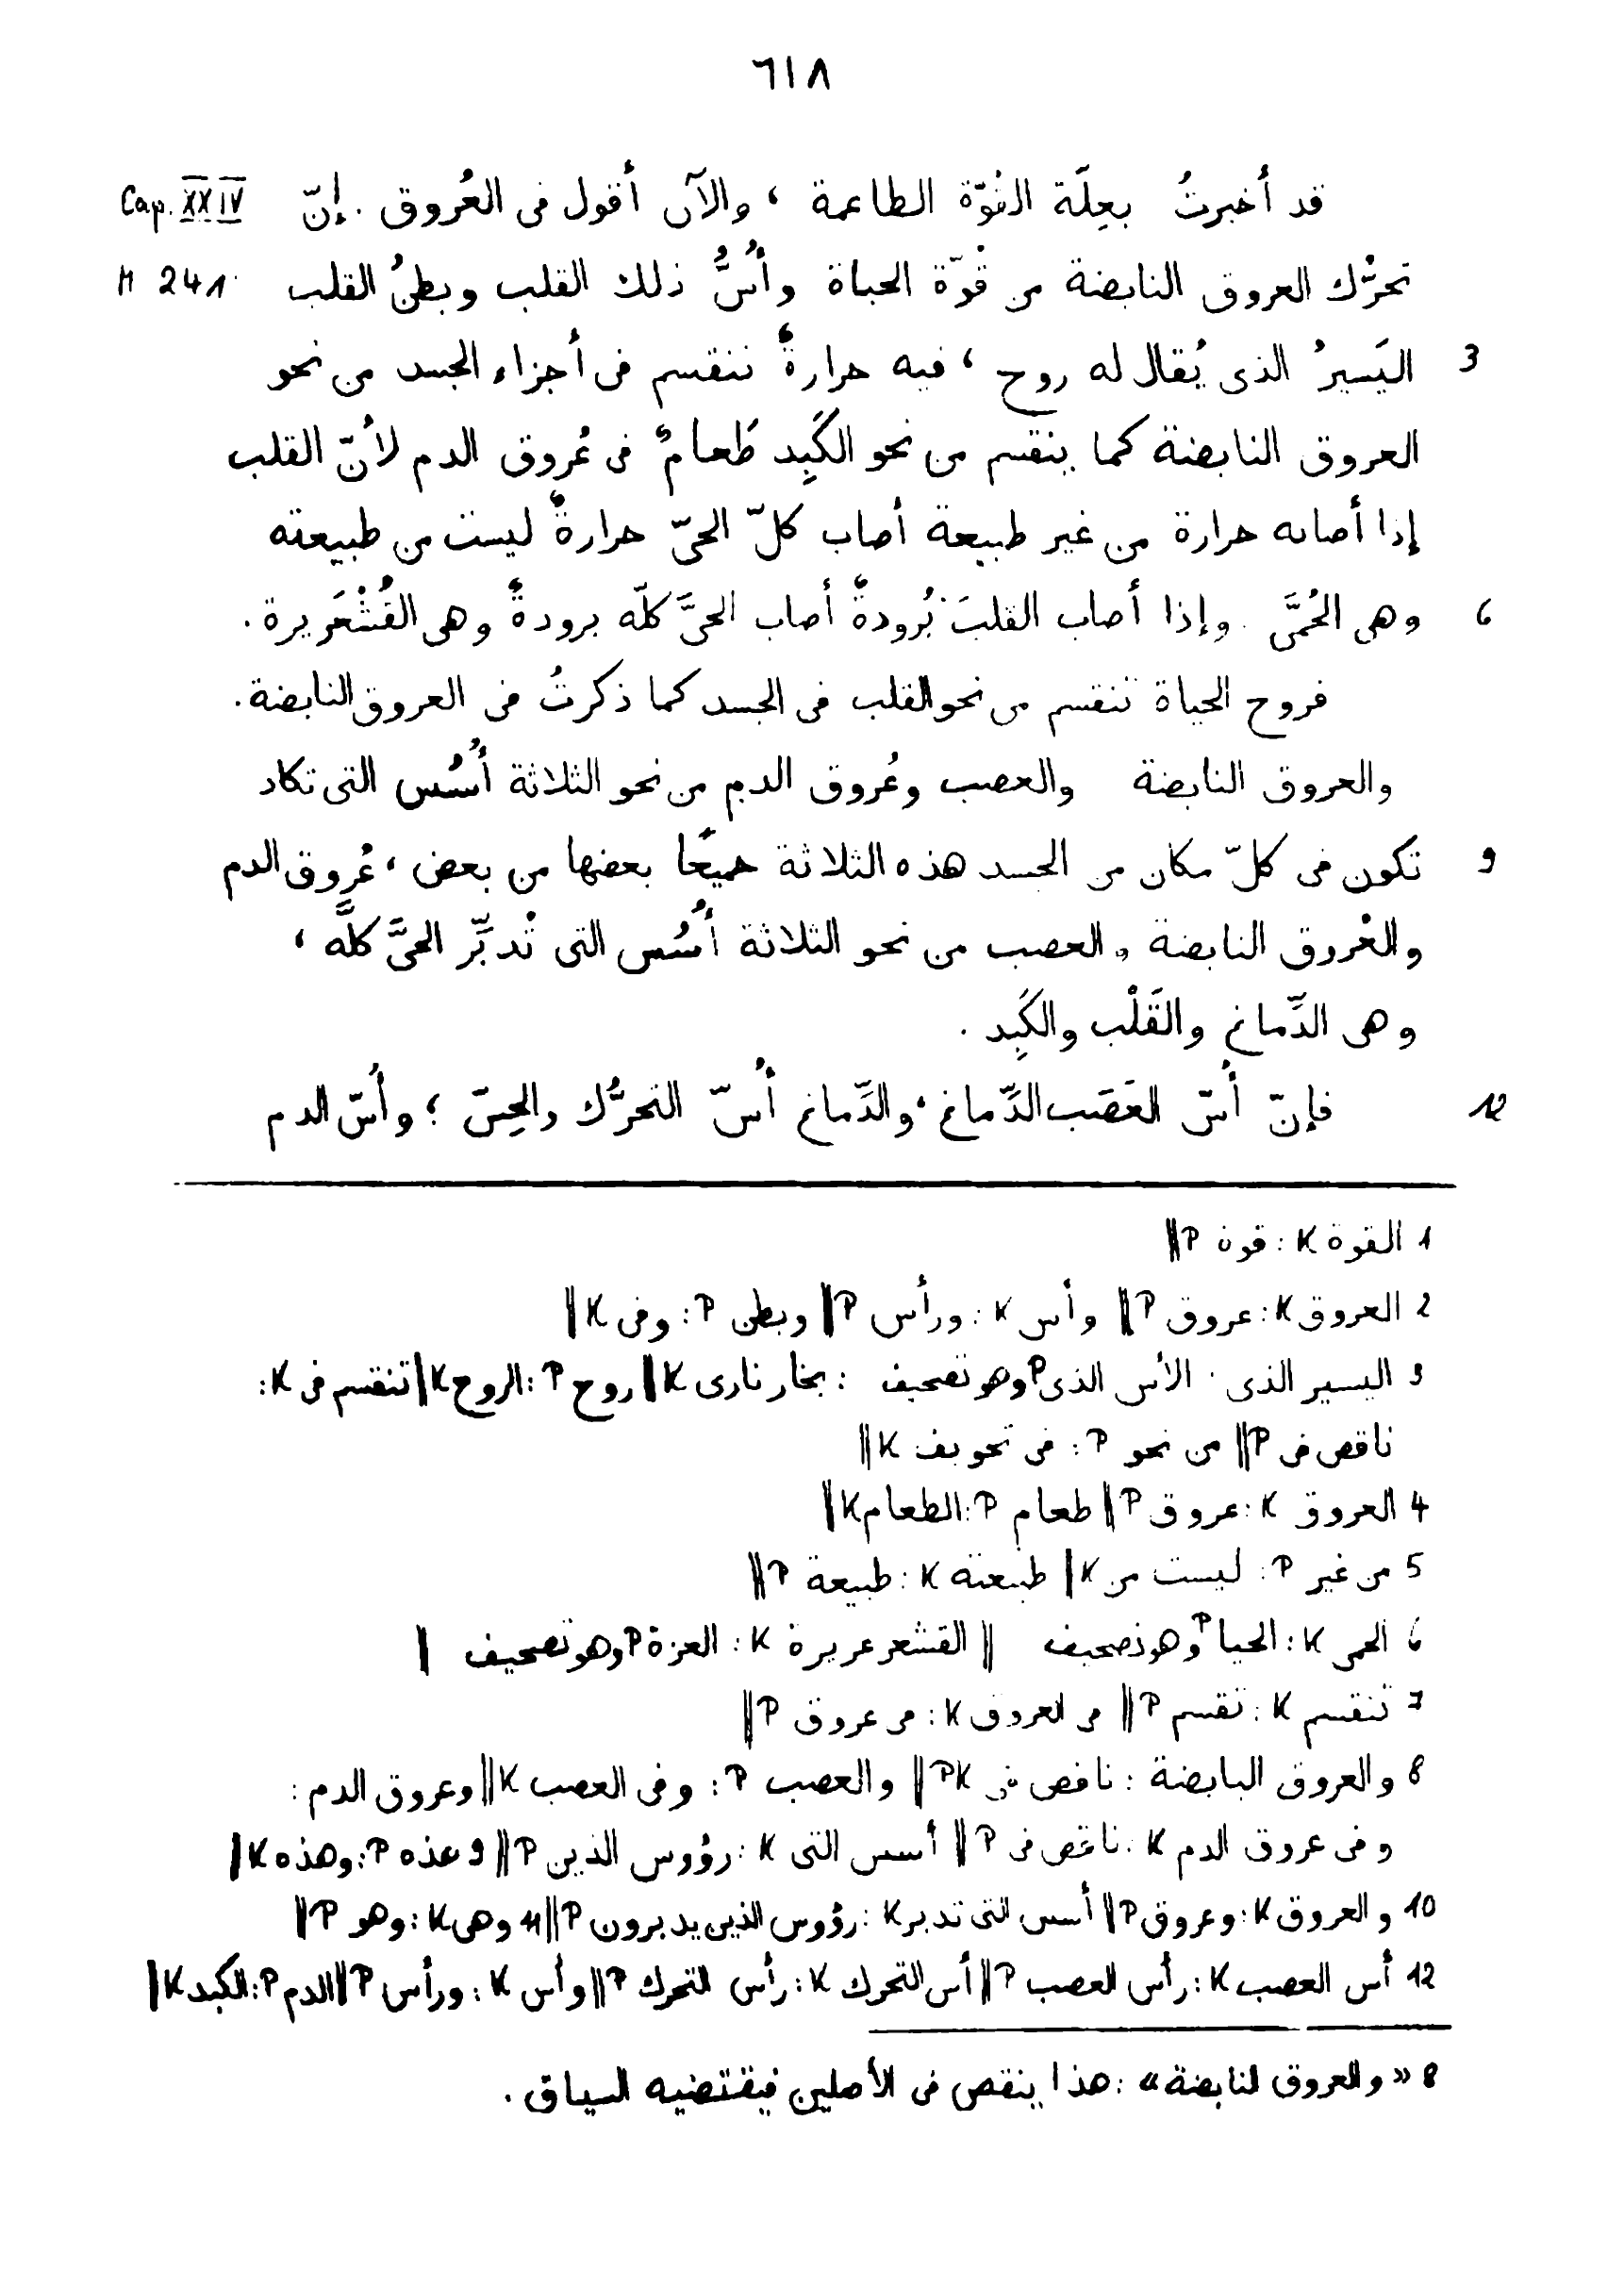 ٦١٨
قد أخبرتُ بعِلَة القُوّة الطاعمة ، والآن أقول فى العُروق . إنّ Cap. XXIV
تحرُّك العروق النابضة من قُوّة الحياة وأُسُّ ذلك القلب وبطنُ القلب M 241
3 اليَسيرُ الذى يُقال له روح ، فيه حرارةٌ تنقسم فى أجزاء الجسد من نحو
العروق النابضة كما ينقسم من نحو الكَبِد طَعامٌ فى عُروق الدم لأنّ القلب
إذا أصابه حرارة من غير طبيعة أصاب كلّ الحىّ حرارةٌ ليست من طبيعته
6 وهى الحُمَّى . وإذا أصاب القلبَ بُرودةٌ أصاب الحىَّ كلّه برودةٌ وهى القُشْعَريرة .
فروح الحياة تنقسم من نحو القلب فى الجسد كما ذكرتُ فى العروق النابضة .
والعروق النابضة والعصب وعُروق الدم من نحو الثلاثة أُسُس التى تكاد
9 تكون فى كلّ مكان من الجسد هذه الثلاثة جميعًا بعضها من بعض ، عُروق الدم
والعُروق النابضة والعصب من نحو الثلاثة أُسُس التى تُدبِّر الحىَّ كلَّه ،
وهى الدِّماغ والقَلْب والكَبِد .
12 فإنّ أُسّ العَصَب الدِّماغ ، والدِّماغ أُسّ التحرُّك والحِسّ ؛ وأُسّ الدم
1 القوة K : قوة P ||
2 العروق K : عروق P || وأس K : ورأس P || وبطن P : وفى K ||
3 اليسير الذى : الأس الذى P وهو تصحيف : بخار نارى K || روح P : الروح K || تنقسم فى K :
ناقص فى P || من نحو P : فى تجويف K ||
4 العروق K : عروق P || طعام P : الطعام K ||
5 من غير P : ليست من K || طبيعته K : طبيعة P ||
6 الحمى K : الحيا P وهو تصحيف || القشعرعريرة K : العزة P وهو تصحيف ||
7 تنقسم K : تقسم P || من العروق K : من عروق P ||
8 والعروق النابضة : ناقص فى PK || والعصب P : وفى العصب K || وعروق الدم :
وفى عروق الدم K : ناقص فى P || أسس التى K : رؤوس الذين P || 9 هذه P : وهذه K ||
10 والعروق K : وعروق P || أسس التى تدبر K : رؤوس الذين يدبرون P || 11 وهى K : وهو P ||
12 أس العصب K : رأس العصب P || أس التحرك K : رأس التحرك P || وأس K : ورأس P || الدم P : الكبد K ||
8 « والعروق النابضة » : هذا ينقص فى الأصلين فيقتضيه السياق .